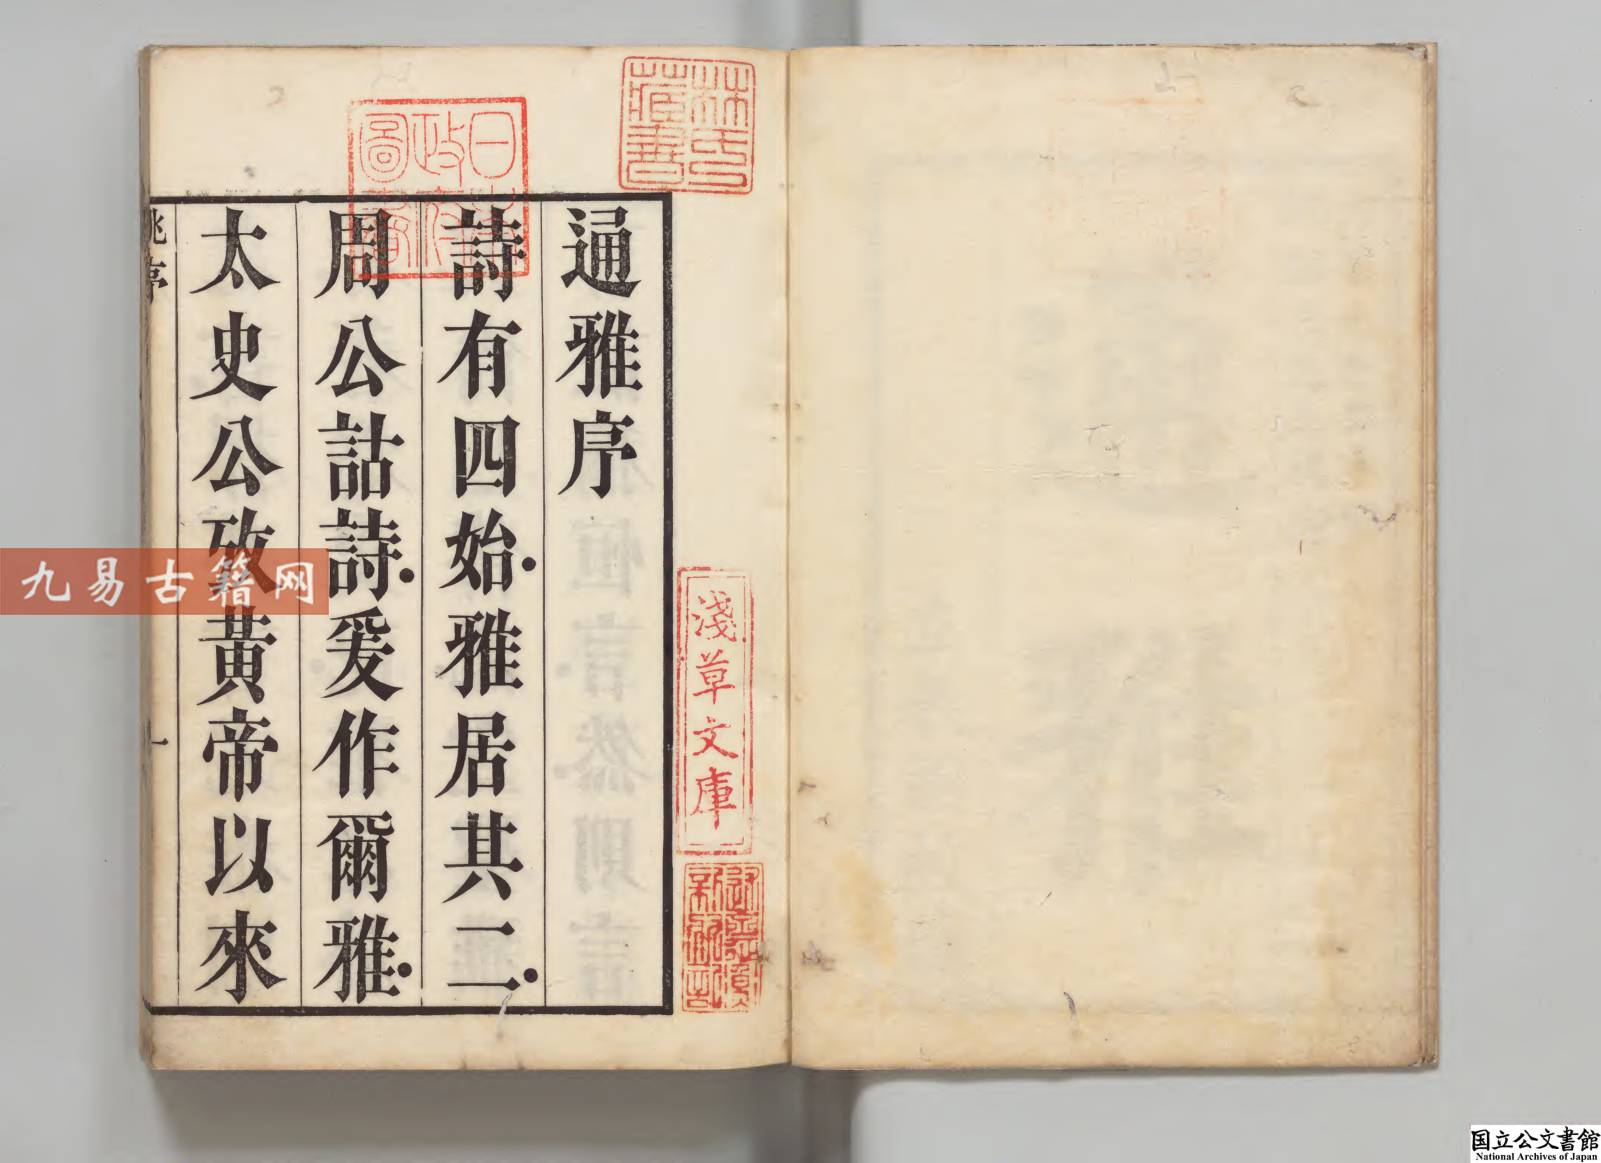 通雅序
詩有四始雅居其二
周公詁詩爰作爾雅
太史公攷黃帝以來
姚序
一
林氏藏書
日本政府圖書
淺草文庫
九易古籍网
国立公文書館
National Archives of Japan